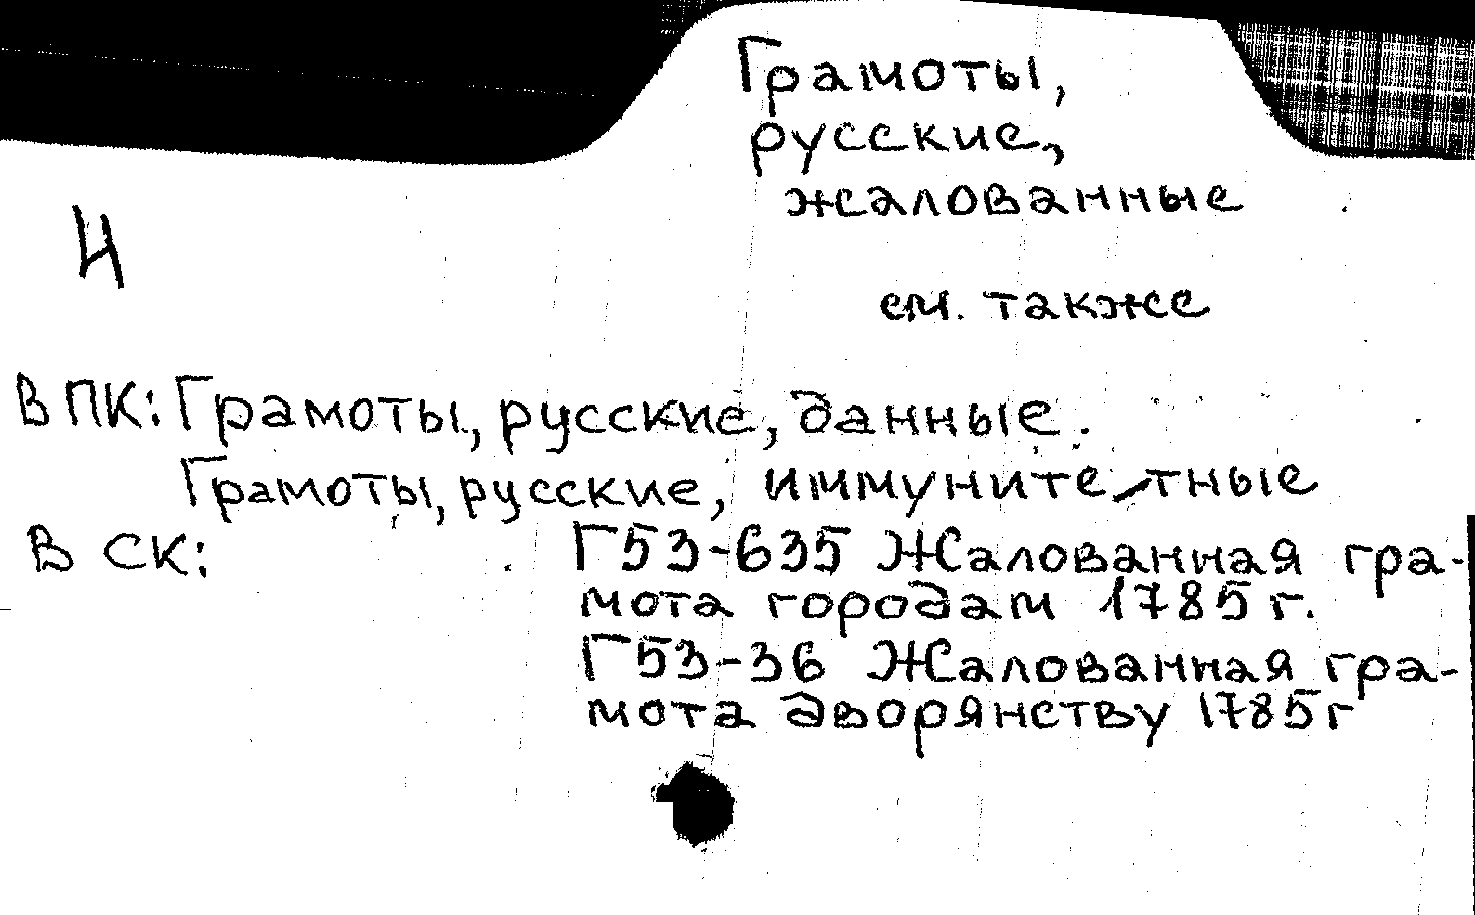 Грамоты,
русские,
жалованные
4
см. также
В ПК: Грамоты, русские, данные.
Грамоты, русские, иммуните-тные
В СК: Г53-635 Жалованная гра-
мота городам 1785 г.
Г53-36 Жалованная гра-
мота дворянству 1785 г